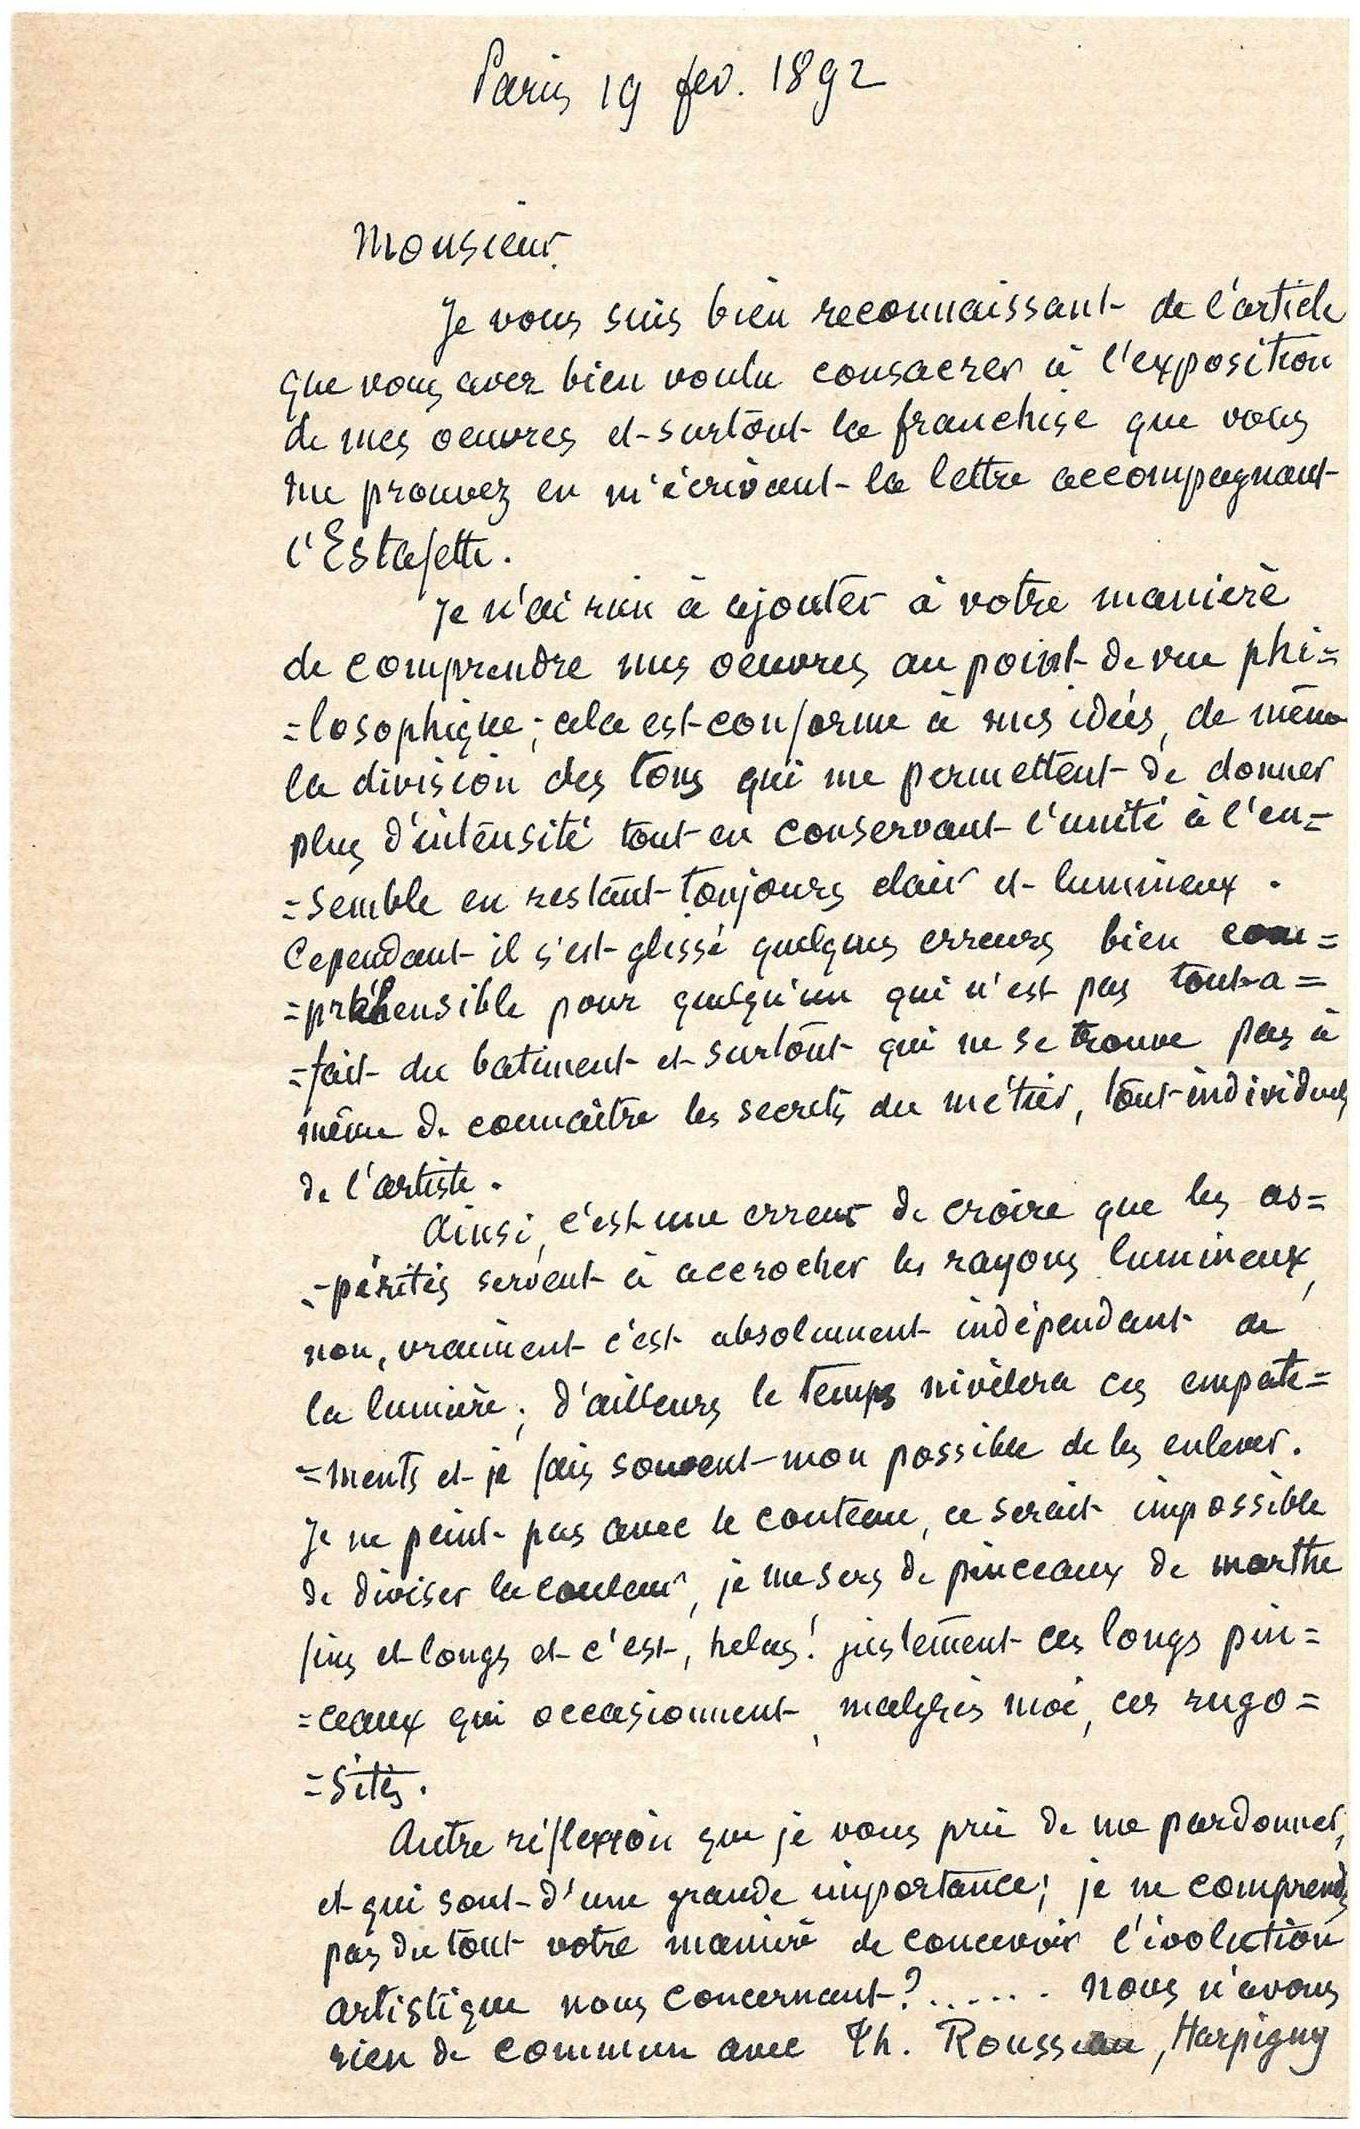 Paris 19 fev. 1892
Monsieur.
Je vous suis bien reconnaissant de l'article
que vous avez bien voulu consacrer à l'exposition
de mes oeuvres et surtout la franchise que vous
me prouvez en m'écrivant la lettre accompagnant
l'Estafette.
Je n'ai rien à ajouter à votre manière
de comprendre mes oeuvres au point de vue phi=
=losophique; cela est conforme à mes idées, de même
la division des tons qui me permettent de donner
plus d'intensité tout en conservant l'unité à l'en=
=semble en restant toujours clair et lumineux.
Cependant il s'est glissé quelques erreurs bien com=
=préhensible pour quelqu'un qui n'est pas tout-a=
=fait du batiment et surtout qui ne se trouve pas à
même de connaître les secrets du métier, tout individuels
de l'artiste.
Ainsi, c'est une erreur de croire que les as=
=pérités servent à accrocher les rayons lumineux,
non, vraiment c'est absolument indépendant de
la lumière; d'ailleurs le temps nivèlera ces empate=
=ments et je fais souvent mon possible de les enlever.
Je ne peint pas avec le couteau, ce serait impossible
de diviser la couleur, je me sers de pinceaux de marthe
fins et longs et c'est, helas! justement ces longs pin=
=ceaux qui occasionnent, malgrès moi, ces rugo=
=sités.
Autre réflexion que je vous prie de me pardonner,
et qui sont d'une grande importance; je ne comprends
pas du tout votre manière de concevoir l'évolution
artistique nous concernant?...... Nous n'avons
rien de commun avec Th. Rousseau, Harpigny